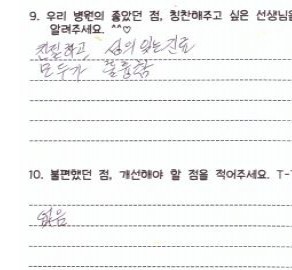 9. 우리 병원의 좋았던 점, 칭찬해주고 싶은 선생님을
알려주세요. ^^♡
친절하고, 성의 있는 진료
모두가 훌륭함
10. 불편했던 점, 개선해야 할 점을 적어주세요. T-
없음